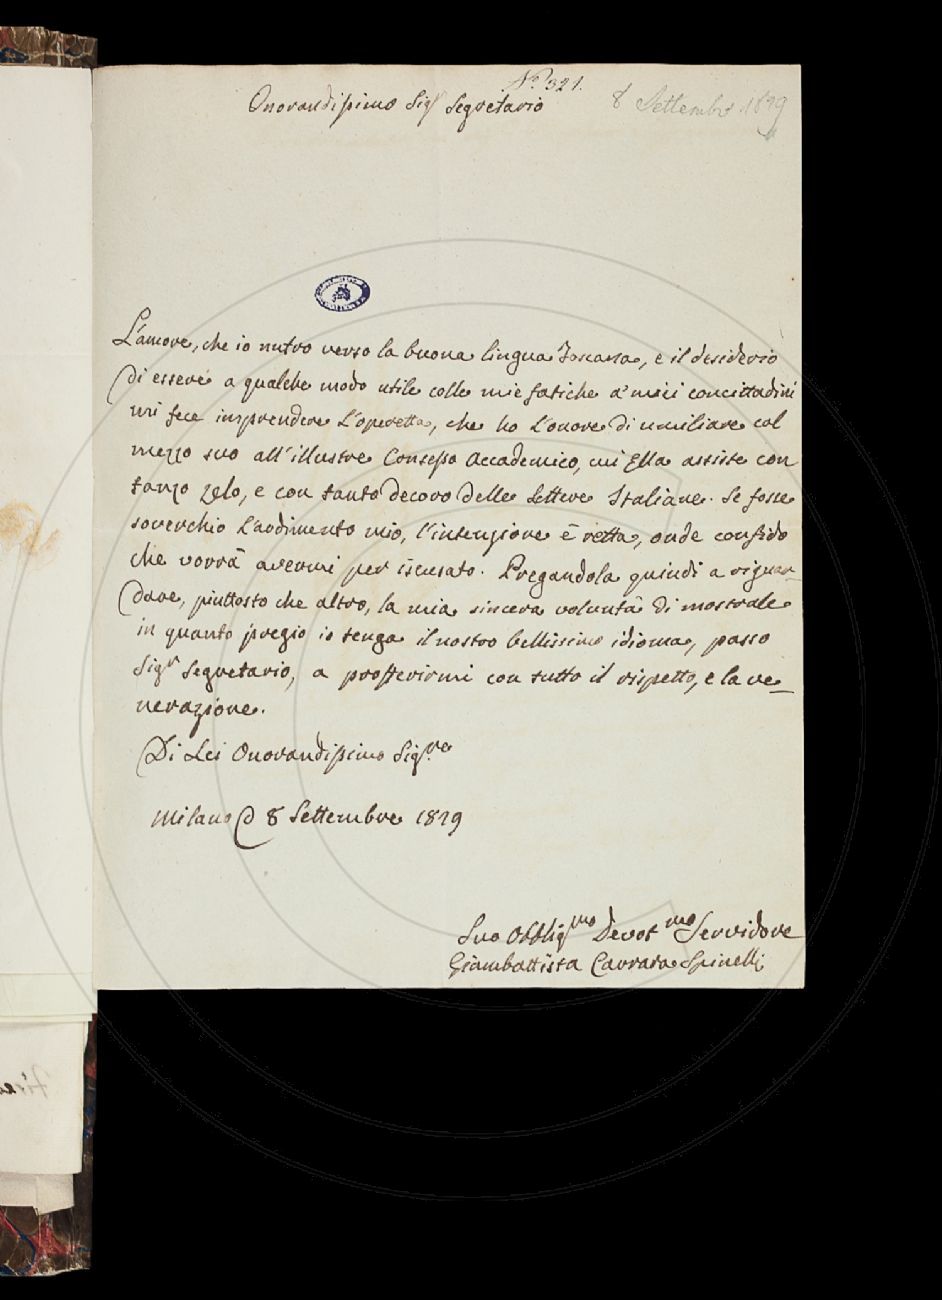 N.º 321.
Onorandissimo Sigr Segretario
8 Settembre 1829
L'amore, che io nutro verso la buona lingua Toscana, e il desiderio
di essere a qualche modo utile colle mie fatiche a' miei concittadini
mi fece imprendere l'operetta, che ho l'onore di umiliare col
mezzo suo all'illustre Consesso Accademico, cui Ella assiste con
tanto zelo, e con tanto decoro delle Lettere Italiane. Se fosse
soverchio l'ardimento mio, l'intenzione è retta, onde confido
che vorrà avermi per iscusato. Pregandola quindi a riguar-
dare, piuttosto che altro, la mia sincera volontà di mostrale
in quanto pregio io tenga il nostro bellissimo idioma, passo
Sigr Segretario, a profferirmi con tutto il rispetto, e la ve-
nerazione.
Di Lei Onorandissimo Sig.re
Milano 8 Settembre 1829
Suo Obbligmo Devotmo Servidore
Giambattista Carrara Spinelli